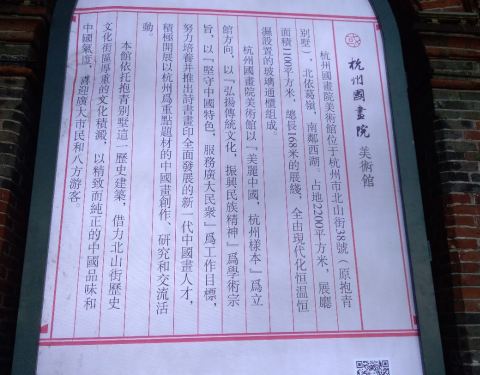 杭州國畫院 美術館
杭州國畫院美術館位于杭州市北山街38號（原抱青
别墅），北依葛嶺，南鄰西湖。占地2200平方米，展廳
面積1100平方米，總長168米的展綫，全由現代化恒温恒
濕設置的玻璃通櫃組成。
杭州國畫院美術館以『美麗中國，杭州樣本』爲立
館方向，以『弘揚傳統文化，振興民族精神』爲學術宗
旨，以『堅守中國特色，服務廣大民衆』爲工作目標，
努力培養并推出詩書畫印全面發展的新一代中國畫人才，
積極開展以杭州爲重點題材的中國畫創作、研究和交流活
動。
本館依托抱青别墅這一歷史建築，借力北山街歷史
文化街區厚重的文化積澱，以精致而純正的中國品味和
中國氣度，喜迎廣大市民和八方游客。